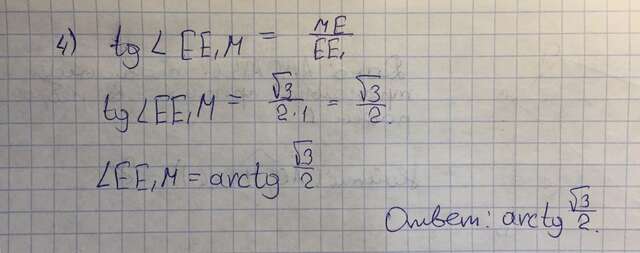 4) tg ∠ EE₁M = ME/EE₁
tg ∠EE₁M = √3/2·1 = √3/2.
∠EE₁M = arctg √3/2
Ответ: arctg √3/2.